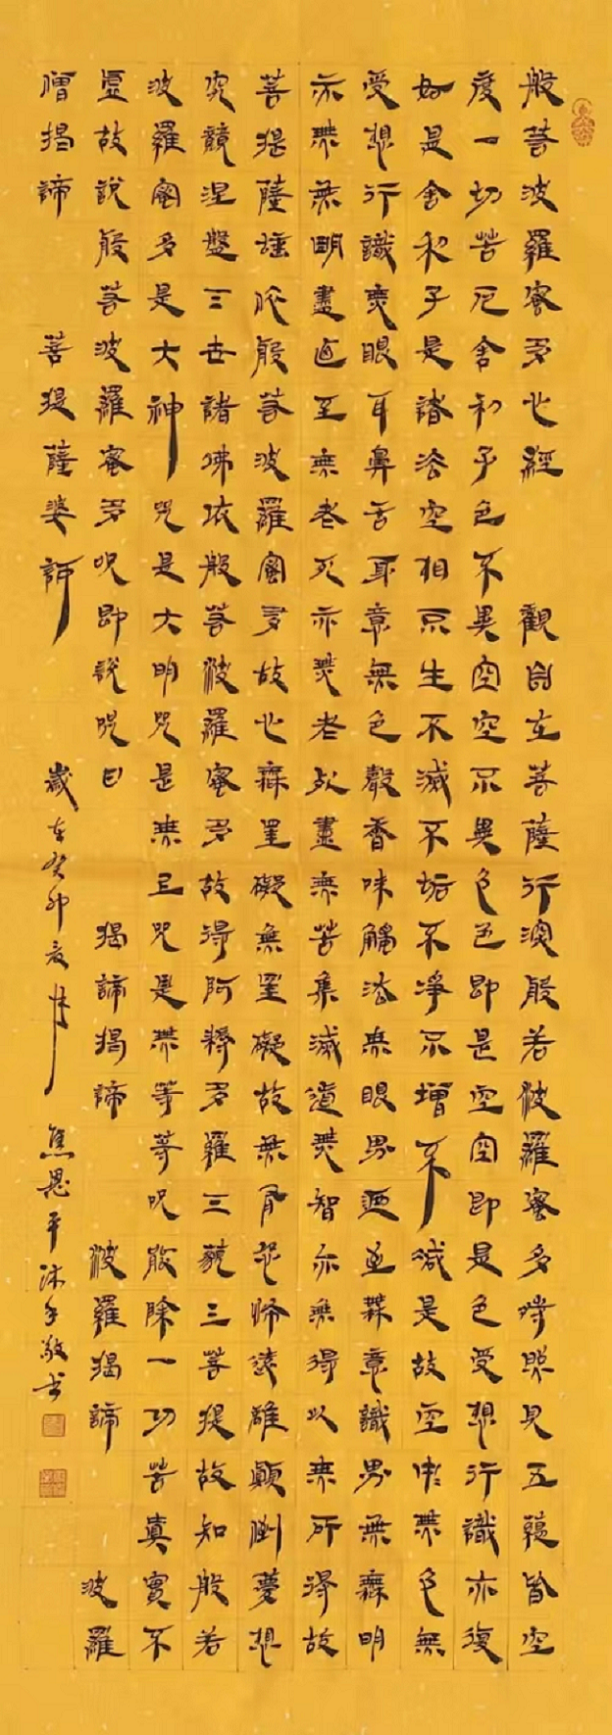 般若波羅蜜多心經 觀自在菩薩行深般若波羅蜜多時照見五蘊皆空
度一切苦厄舍利子色不異空空不異色色即是空空即是色受想行識亦復
如是舍利子是諸法空相不生不滅不垢不淨不增不減是故空中無色無
受想行識無眼耳鼻舌身意無色聲香味觸法無眼界迺至無意識界無無明
亦無無明盡迺至無老死亦無老死盡無苦集滅道無智亦無得以無所得故
菩提薩埵依般若波羅蜜多故心無罣礙無罣礙故無有恐怖遠離顛倒夢想
究竟涅盤三世諸佛依般若波羅蜜多故得阿耨多羅三藐三菩提故知般若
波羅蜜多是大神咒是大明咒是無上咒是無等等咒能除一切苦真實不
虛故說般若波羅蜜多咒即說咒曰 揭諦揭諦 波羅揭諦 波羅
僧揭諦 菩提薩婆訶 歲在癸卯夏月 焦平沐手敬書